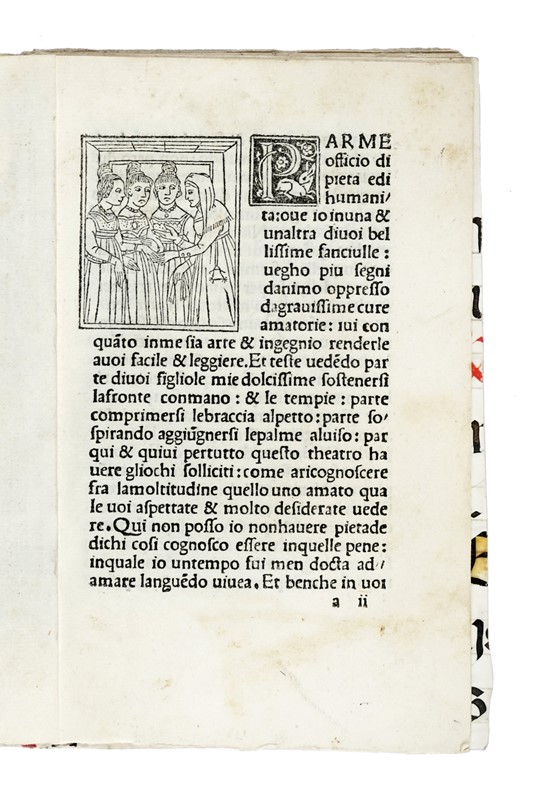 PARME
officio di
pieta edi
humani/
ta:oue io inuna &
unaltra diuoi bel
lissime fanciulle :
uegho piu segni
danimo oppresso
dagrauissime cure
amatorie: iui con
quāto inme sia arte & ingegnio renderle
auoi facile & leggiere. Et teste uedēdo par
te diuoi figliole mie dolcissime sostenersi
lafronte conmano : & le tempie : parte
comprimersi lebraccia alpetto: parte so/
spirando aggiūgnersi lepalme aluiso: par
qui & quiui pertutto questo theatro ha
uere gliochi solliciti: come aricognoscere
fra lamoltitudine quello uno amato qua
le uoi aspettate & molto desiderate uede
re. Qui non posso io nonhauere pietade
dichi cosi cognosco essere inquelle pene:
inquale io untempo fui men docta ad/
amare languēdo uiuea. Et benche in uoi
a ii